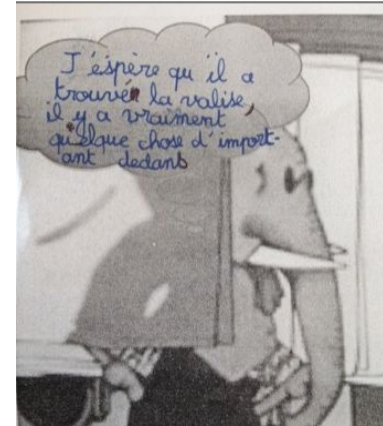 J'éspère qu'il a
trouvé la valise,
il y a vraiment
quelque chose d'import-
ant dedans